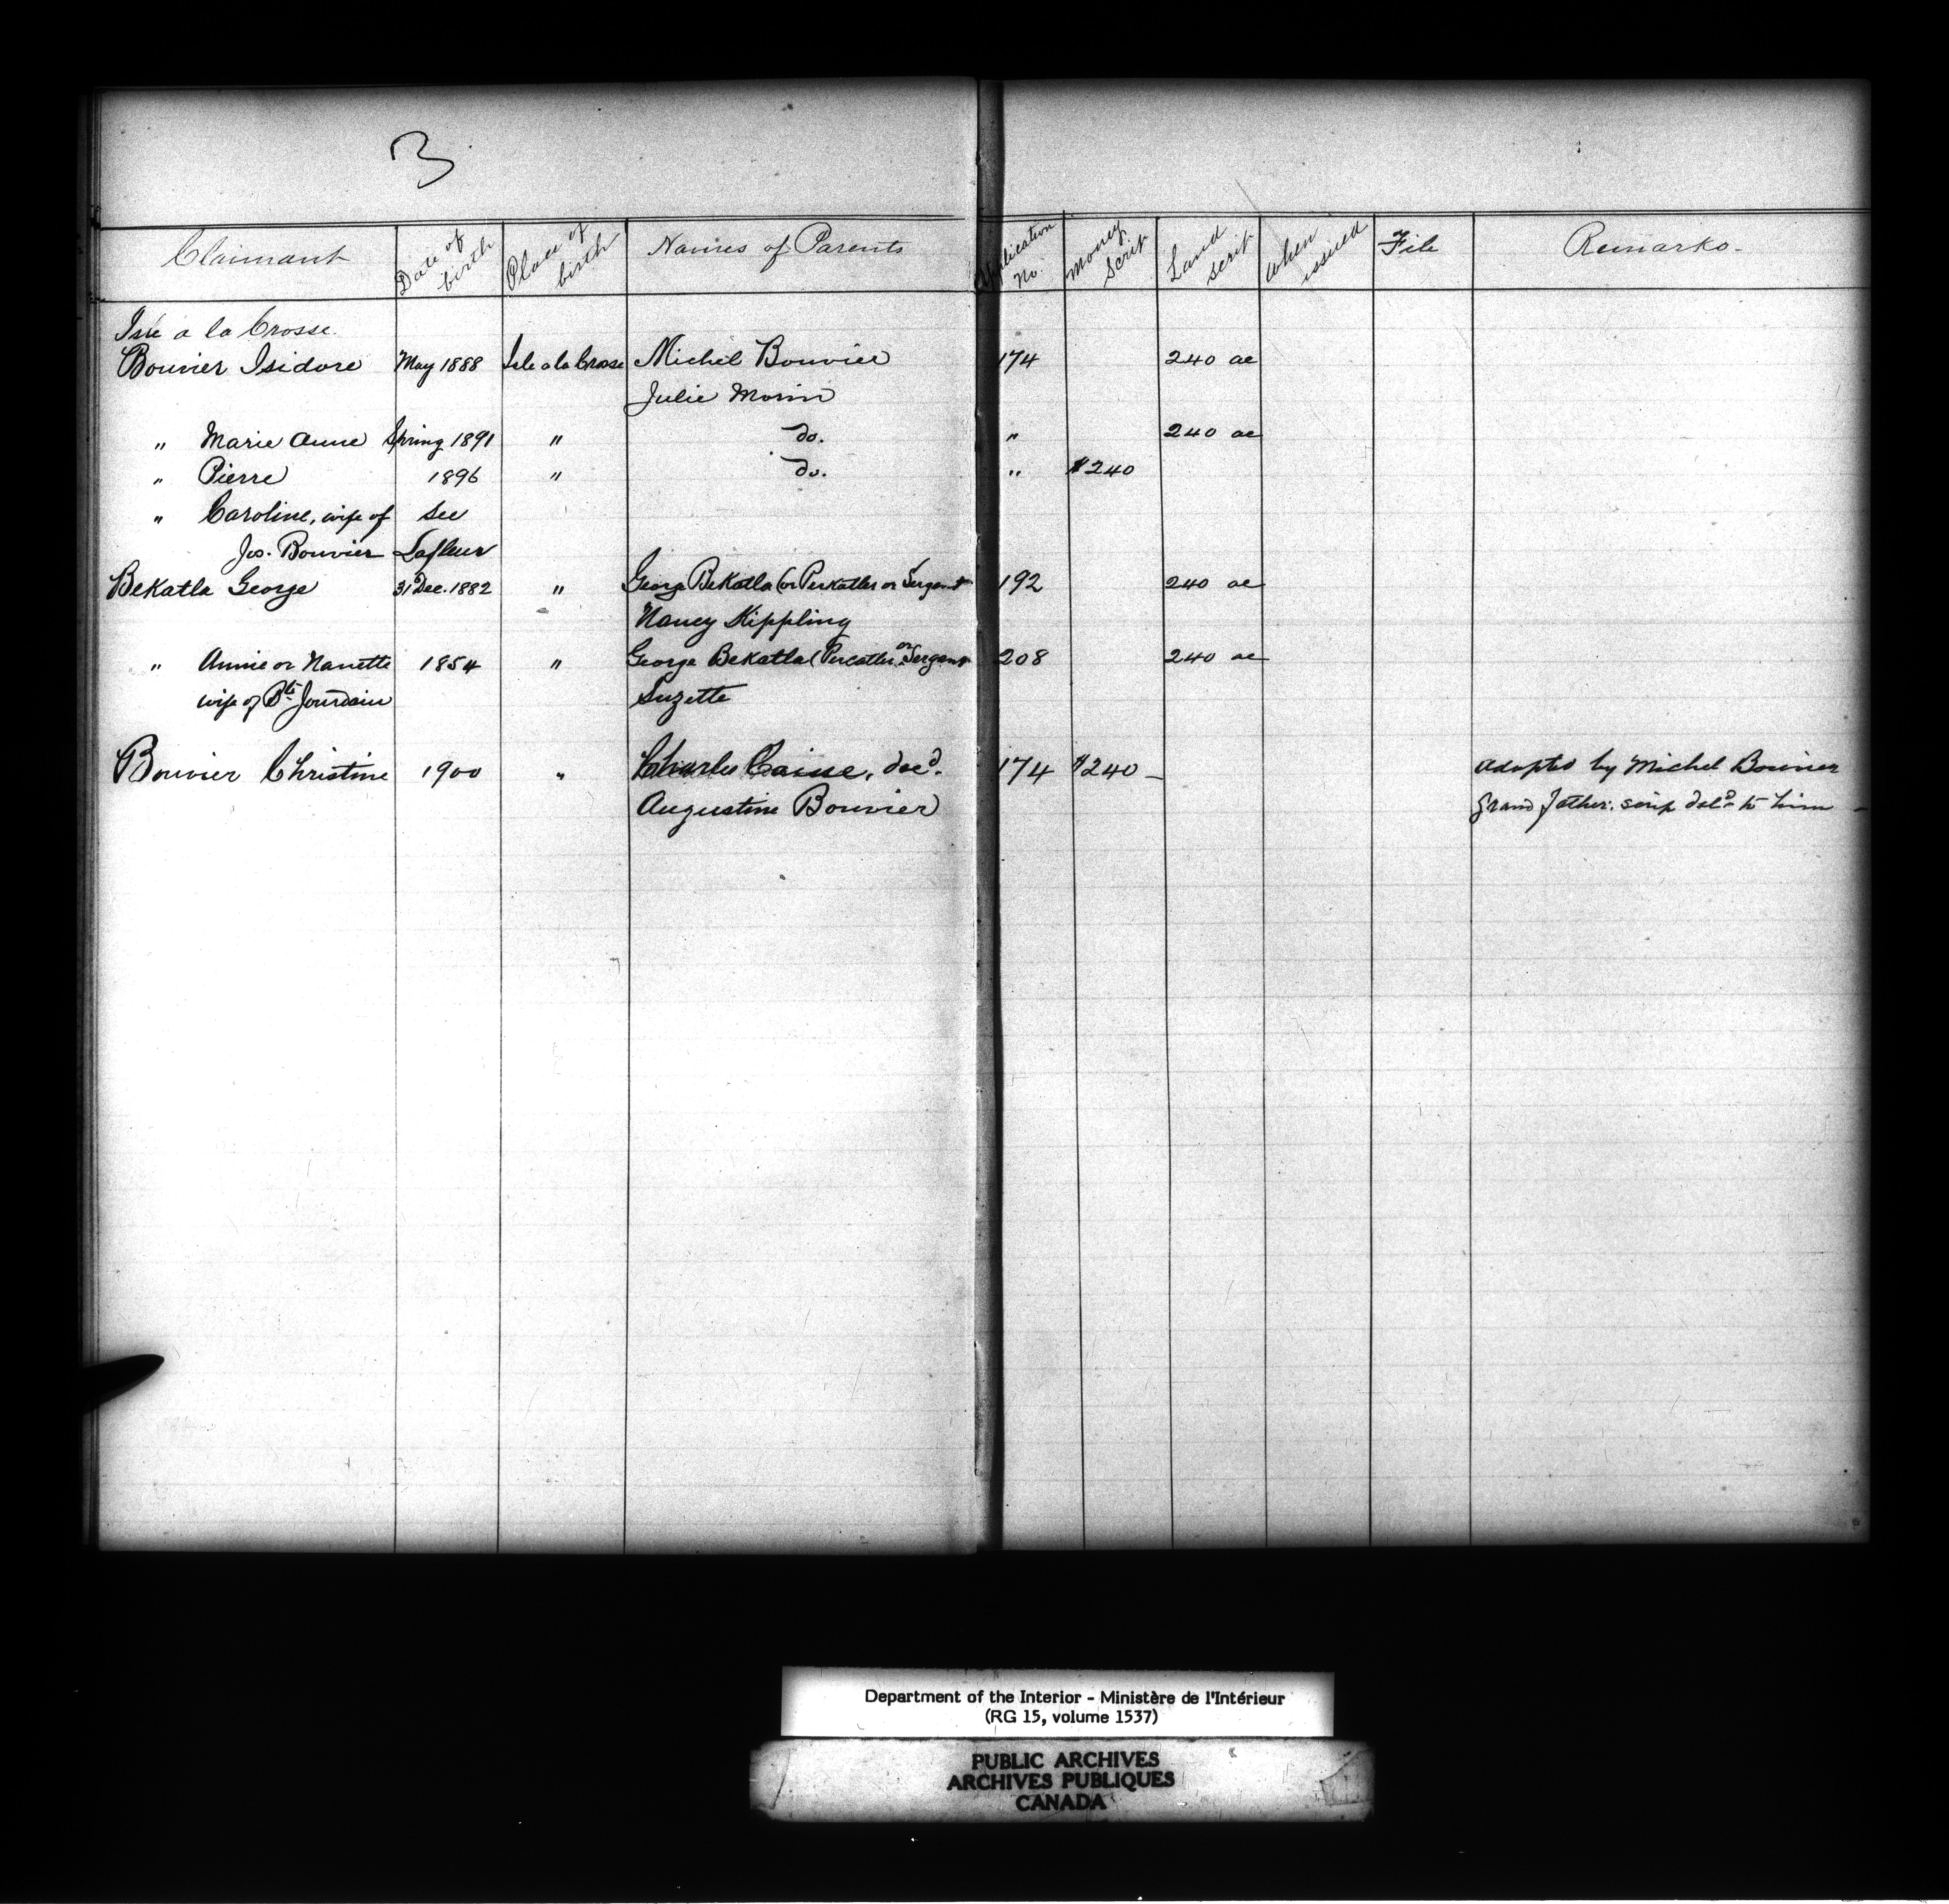 B
Claimant Date of birth Place of birth Names of Parents Application No. Money Scrip Land scrip When issued File Remarks.
Isle a la Crosse
Bouvier Isidore May 1888 Isle a la Crosse Michel Bouvier 174 240 ac
Julie Morin
" Marie Anne Spring 1891 " do. " 240 ac
" Pierre 1896 " do. " $240
" Caroline, wife of See
Jos. Bouvier Lafleur
Bekatla George 31 Dec. 1882 " George Bekatla (or Perkatler or Sergent 192 240 ac
Nancy Kippling
" Annie or Nanette 1854 " George Bekatla (Percatler or Sergent 208 240 ac
wife of Bte Jourdain Suzette
Bouvier Christine 1900 " Charles Caisse, decd. 174 $240 – Adopted by Michel Bouvier
Augustine Bouvier Grand father. scrip deld to him –
Department of the Interior - Ministère de l'Intérieur
(RG 15, volume 1537)
PUBLIC ARCHIVES
ARCHIVES PUBLIQUES
CANADA